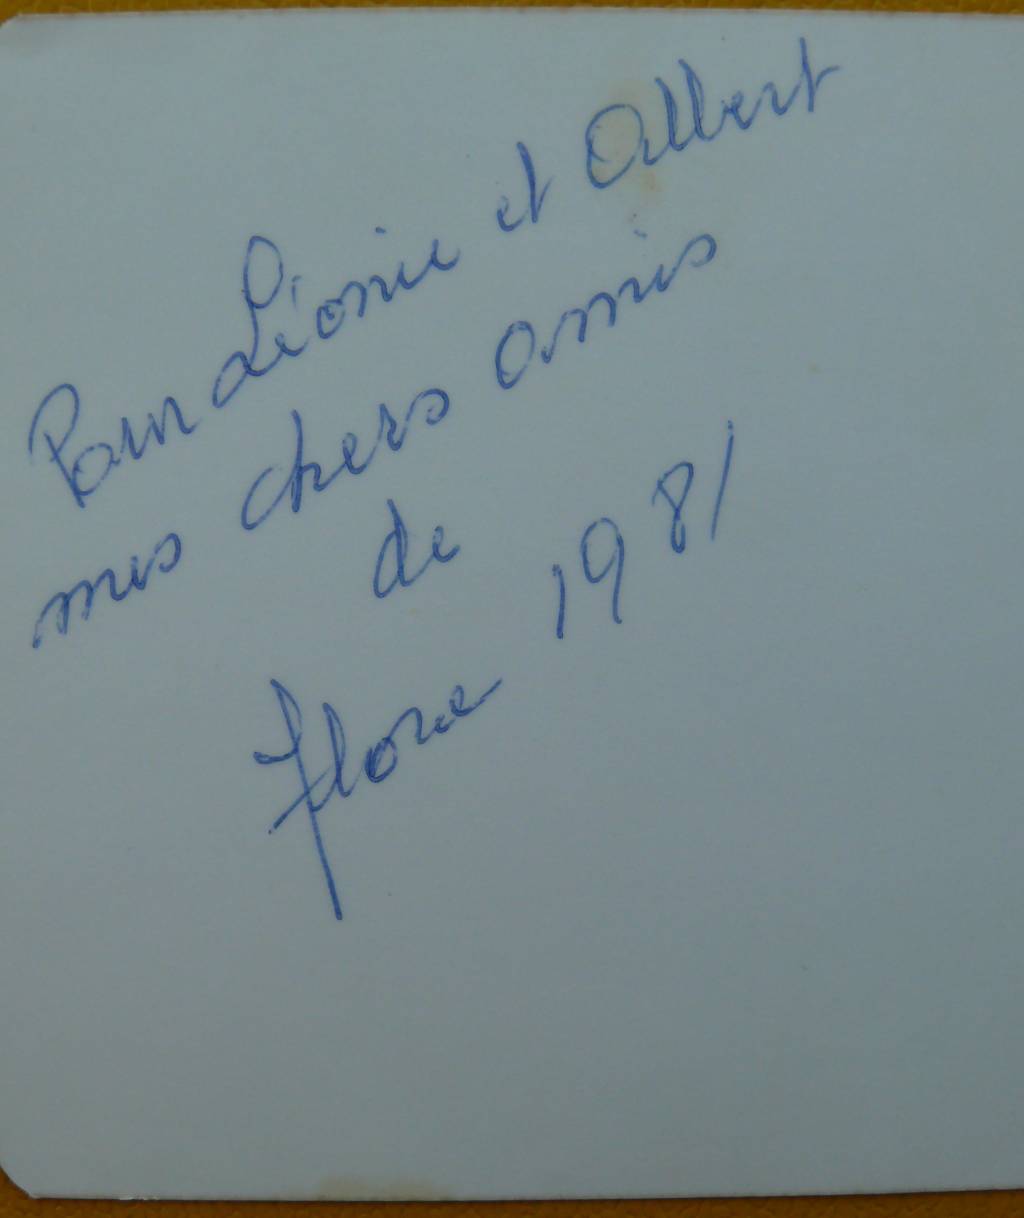 Pour Léonie et Albert
mes chers amis
de
Flore 1981